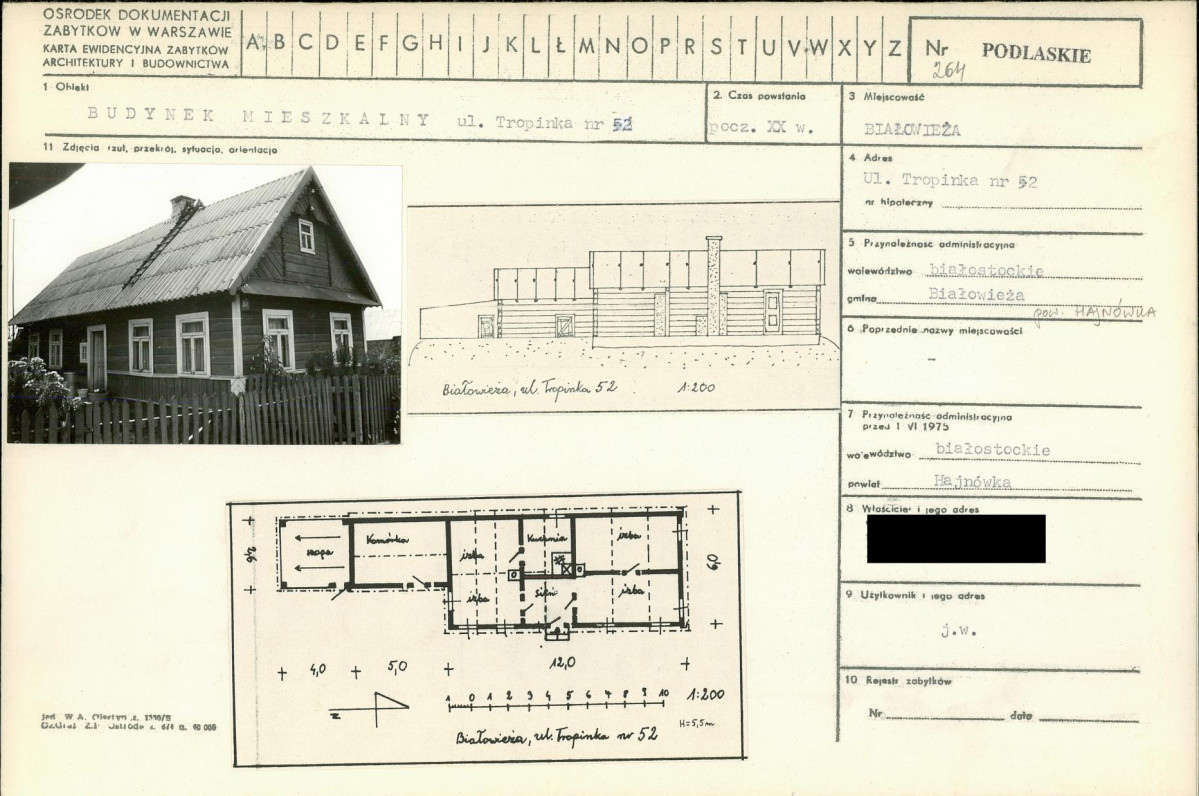 OŚRODEK DOKUMENTACJI
ZABYTKÓW W WARSZAWIE
KARTA EWIDENCYJNA ZABYTKÓW
ARCHITEKTURY I BUDOWNICTWA
A B C D E F G H I J K L Ł M N O P R S T U V W X Y Z
Nr PODLASKIE
264
1 Obiekt
BUDYNEK MIESZKALNY ul. Tropinka nr 52
2. Czas powstania
pocz. XX w.
3 Miejscowość
BIAŁOWIEŻA
11 Zdjęcia rzut, przekrój, sytuacja, orientacja
4 Adres
Ul. Tropinka nr 52
nr hipoteczny
5 Przynależność administracyjna
województwo białostockie
gmina Białowieża
pow. HAJNÓWKA
6 Poprzednie nazwy miejscowości
-
Białowieża, ul. Tropinka 52 1:200
7 Przynależność administracyjna
przed 1 VI 1975
województwo białostockie
powiat Hajnówka
8 Właściciel i jego adres
9 Użytkownik i jego adres
j.w.
10 Rejestr zabytków
Nr data
szopa
Komórka
izba
Kuchnia
izba
izba
Sień
izba
6,0
4,0 5,0 12,0
1 0 1 2 3 4 5 6 7 8 9 10 1:200
N
H=5,5m
Białowieża, ul. Tropinka nr 52